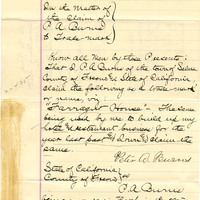 In the Matter of
the Claim of
P. A. Burns
to Trade-mark
Know all Men by these Presents:
That I P. A. Burns of the town of Selma
County of Fresno & State of California
claim the following as a trade-mark
or name, viz:
"Farragut House" - The same
being used by me to build up my
hotel & restaurant business for the
year last past & I claim the
same.
Peter A. Burns
State of California
County of Fresno } ss
P. A. Burns